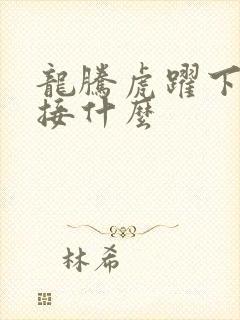 龍騰虎躍下
接什麼
林希